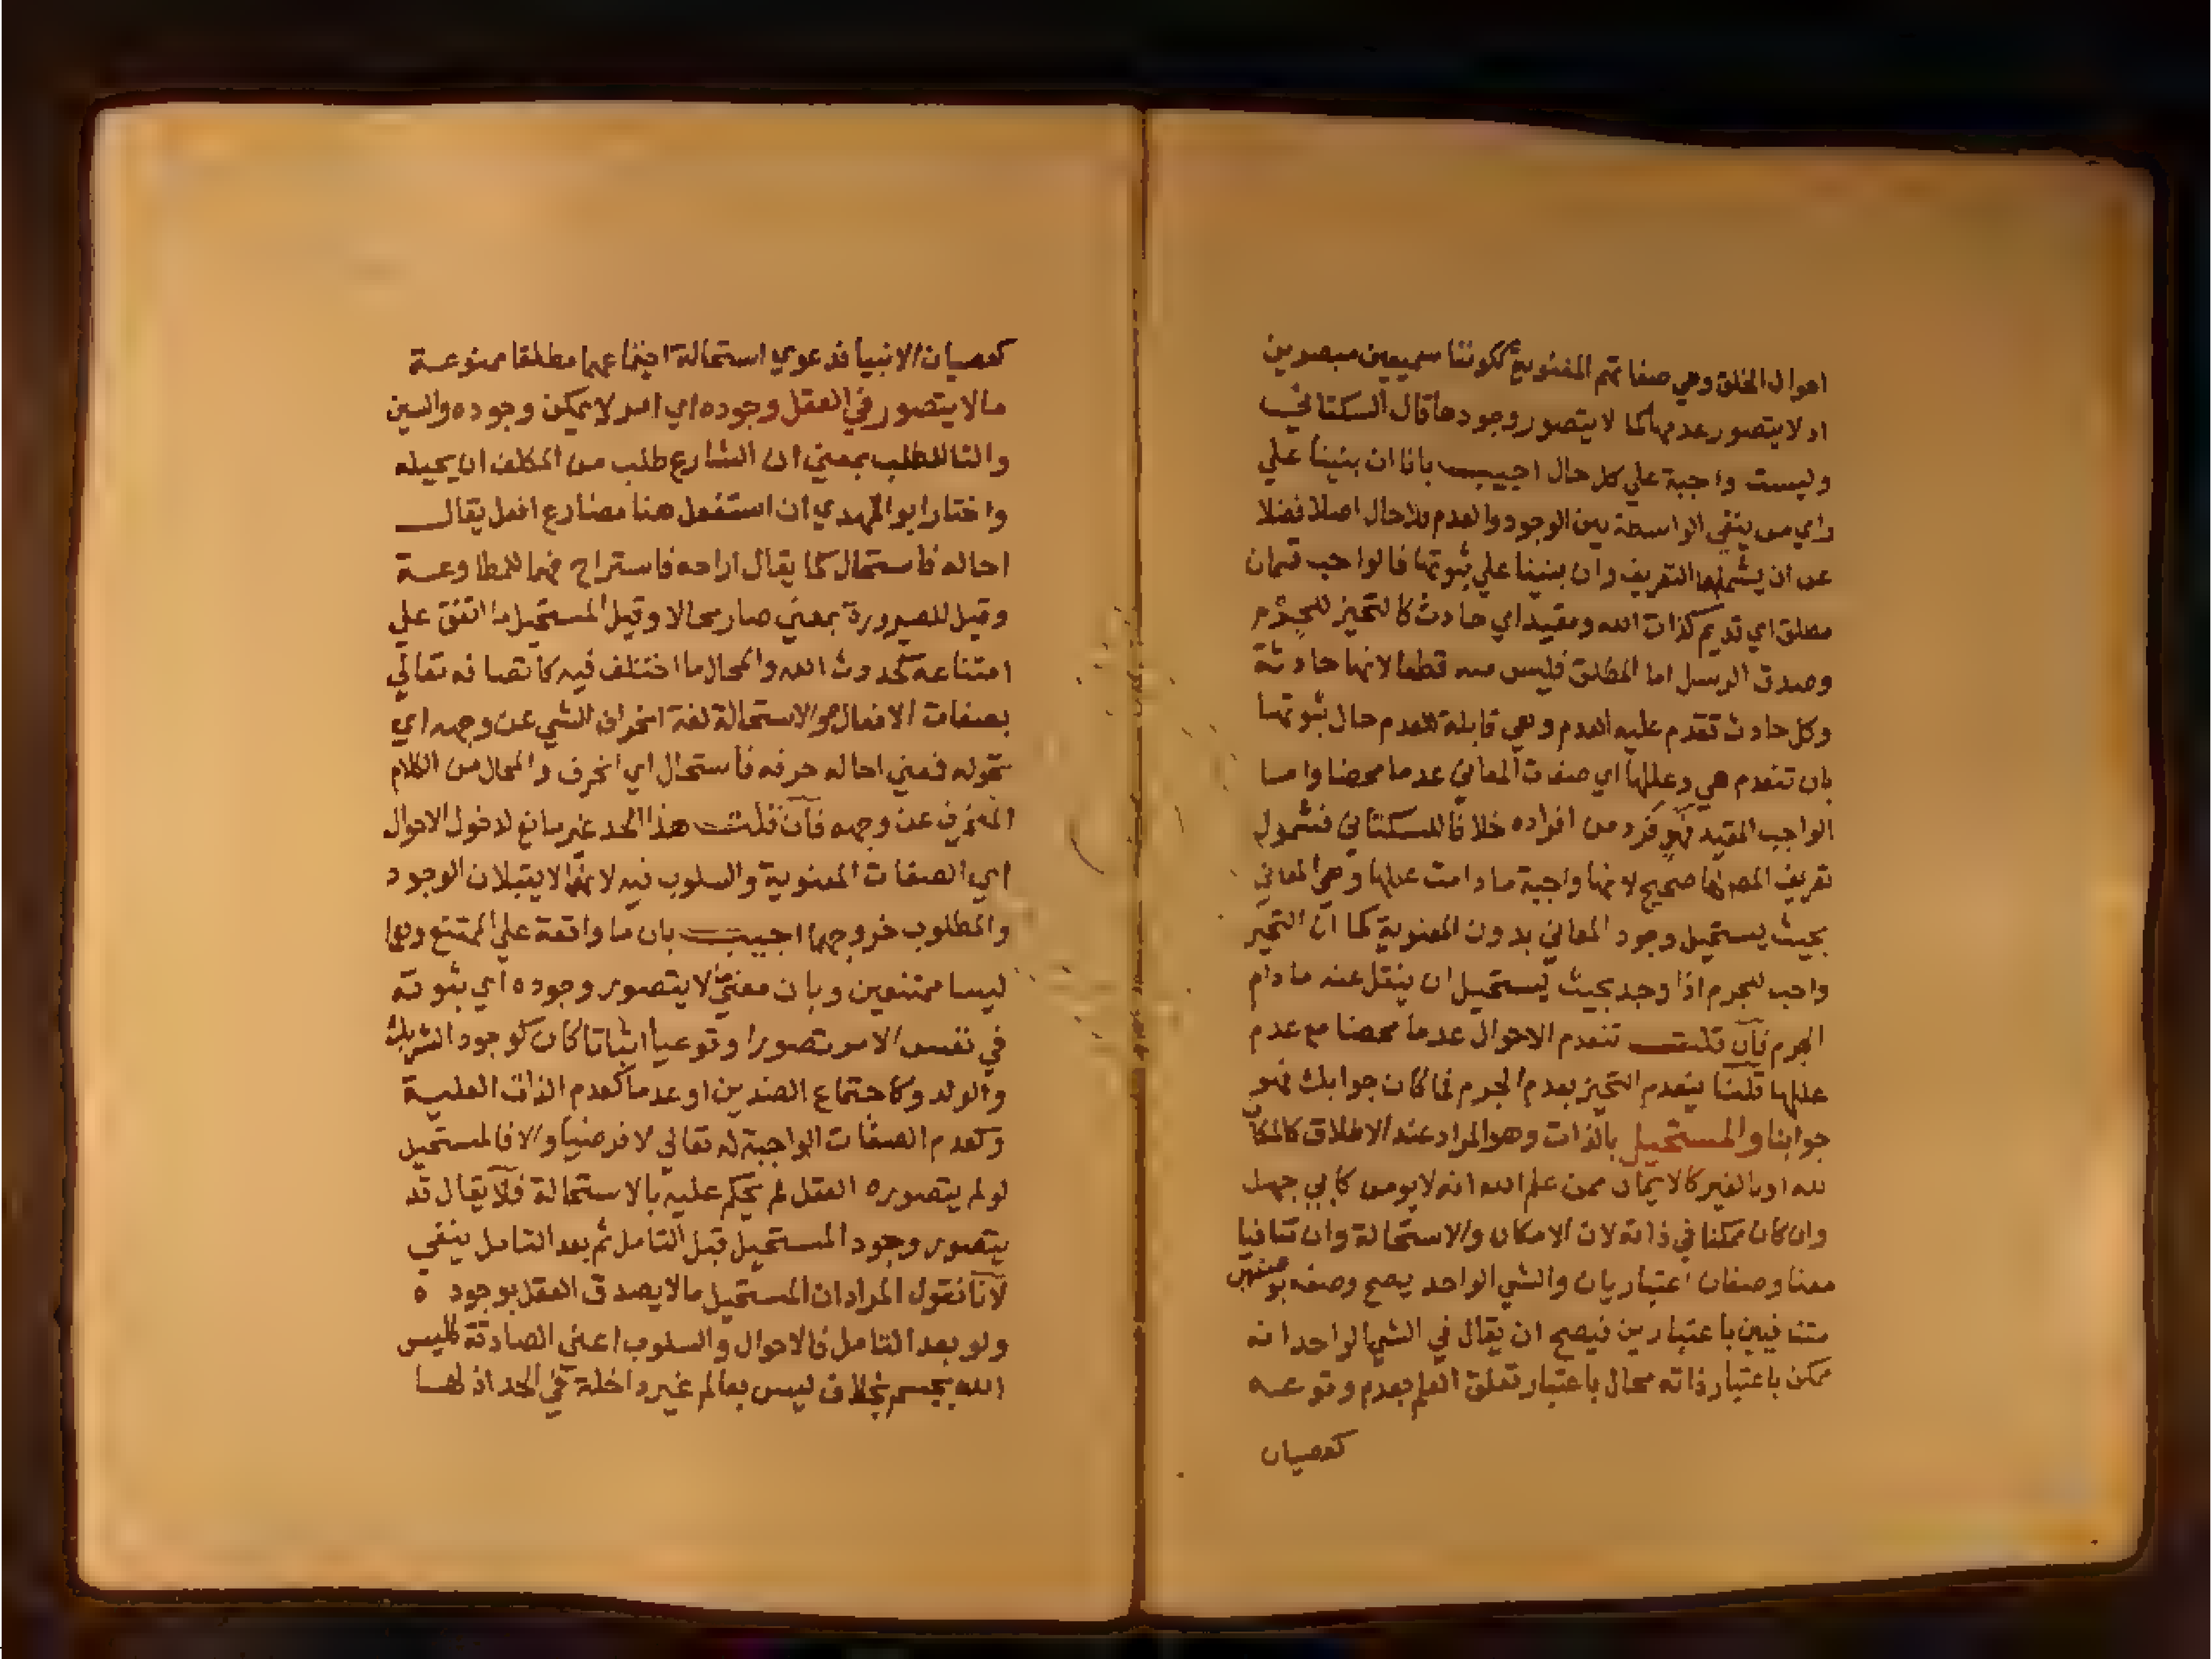 احوال الخلق وهي صفاتهم المعنوية ككوننا سميعين مبصرين
اذ لا يتصور عدمها كما لا يتصور وجودها قال السكتاني
وليست واجبة علي كل حال اجيب بانا ان بنينا علي
راي من ينفي الواسطة بين الوجود والعدم فلا حال اصلا فضلا
عن ان يشملها التعريف وان بنينا علي ثبوتها فالواجب قسمان
مطلق اي قديم كذات الله ومقيد اي حادث كالتحيز للجرم
وصدق الرسل اما المطلق فليس منه قطعا لانها حادثة
وكل حادث تقدم عليه العدم وهي قابلة للعدم حال ثبوتها
بان تنعدم هي وعللها اي صفات المعاني عدما محضا واما
الواجب المقيد فهو فرد من افراده خلافا للسكتاني فشمول
تعريف المص لها صحيح لانها واجبة ما دامت عللها وهي المعاني
بحيث يستحيل وجود المعاني بدون المعنوية كما ان التحيز
واجب للجرم اذا وجد بحيث يستحيل ان ينفك عنه ما دام
الجرم فان قلت تنعدم الاحوال عدما محضا مع عدم
عللها قلنا ينعدم التحيز بعدم الجرم فما كان جوابك فهو
جوابنا والمستحيل بالذات وهو المراد عند الاطلاق كالمكان
لله او بالغير كالايمان ممن علم الله انه لا يومن كابي جهل
وان كان ممكنا في ذاته لان الامكان والاستحالة وان تنافيا
معنا وصفان اعتباريان والشي الواحد يصح وصفه بوصفين
متنافيين باعتبارين فيصح ان يقال في الشي الواحد انه
ممكن باعتبار ذاته محال باعتبار تعلق العلم بعدم وقوعه
كعصيان
كعصيان الانبيا فدعوي استحالة اجتماعهما مطلقا ممنوعة
ما لا يتصور في العقل وجوده اي امر لا يمكن وجوده والسين
والتا للطلب بمعني ان الشارع طلب من المكلف ان يحيله
واختار ابو المهدي ان استفعل هنا مضارع افعل يقال
احاله فاستحال كما يقال اراحه فاستراح فهما للمطاوعة
وقيل للصيرورة بمعني صار محالا وقيل المستحيل ما اتفق علي
امتناعه كحدوث الله والمحال ما اختلف فيه كاتصافه تعالي
بصفات الافعال والاستحالة لغة انحراف الشي عن وجهه اي
تحوله فمعني احاله حرفه فاستحال اي انحرف والمحال من الكلام
المنحرف عن وجهه فان قلت هذا الحد غير مانع لدخول الاحوال
اي الصفات المعنوية والسلوب فيه لانهما لا يقبلان الوجود
والمطلوب خروجهما اجيب بان ما واقعة علي الممتنع وهما
ليسا ممتنعين وبان معني لا يتصور وجوده اي ثبوته
في نفس الامر تصورا وقوعيا اثباتا كان كوجود الشريك
والولد وكاجتماع الضدين او عدما كعدم الذات العلية
وكعدم الصفات الواجبة له تعالي لا فرضيا والا فالمستحيل
لو لم يتصوره العقل لم يحكم عليه بالاستحالة فلا يقال قد
يتصور وجود المستحيل قبل التامل ثم بعد التامل ينفي
لانا نقول المراد ان المستحيل ما لا يصدق العقل بوجوده
ولو بعد التامل فالاحوال والسلوب اعني الصادقة كليس
الله بجسم بخلاف ليس بعالم غير داخلة في الحد اذ لها